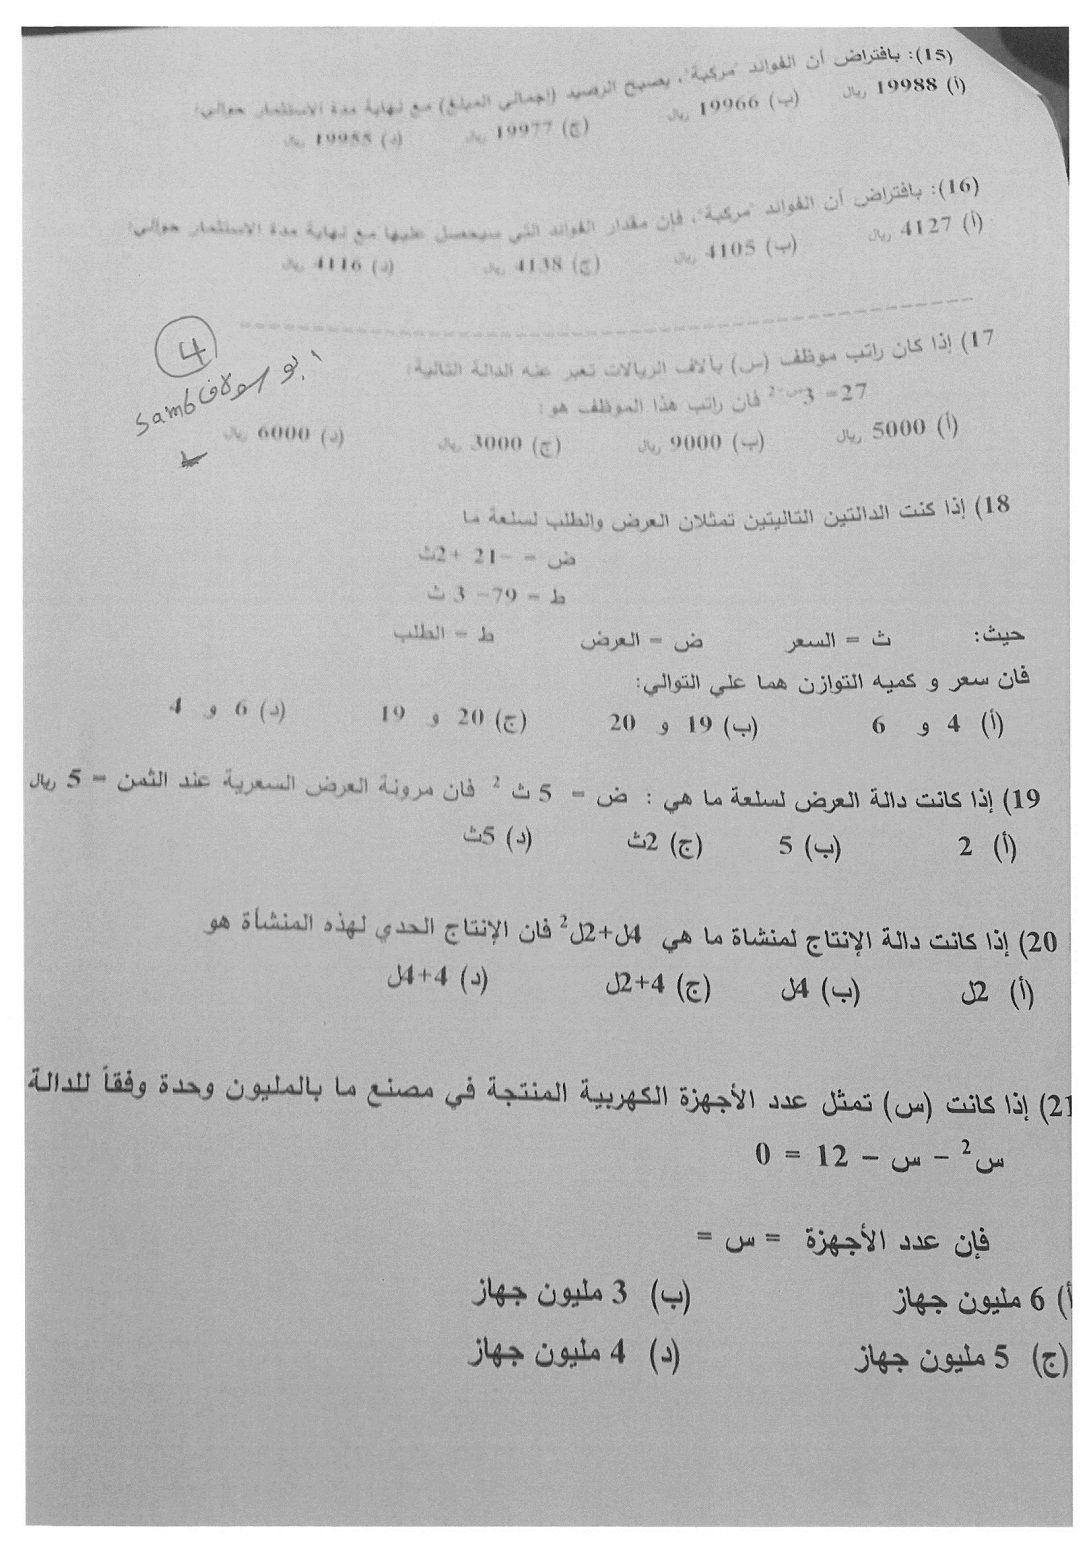 (15): بافتراض أن الفوائد "مركبة"، يصبح الرصيد (إجمالي المبلغ) مع نهاية مدة الاستثمار حوالي:
(أ) 19988 ريال (ب) 19966 ريال (ج) 19977 ريال (د) 19955 ريال
(16): بافتراض أن الفوائد "مركبة"، فإن مقدار الفوائد التي سيحصل عليها مع نهاية مدة الاستثمار حوالي:
(أ) 4127 ريال (ب) 4105 ريال (ج) 4138 ريال (د) 4116 ريال
4
ابو سولاف samb
17) إذا كان راتب موظف (س) بآلاف الريالات تعبر عنه الدالة التالية:
27= 3س-2 فان راتب هذا الموظف هو:
(أ) 5000 ريال (ب) 9000 ريال (ج) 3000 ريال (د) 6000 ريال
18) إذا كنت الدالتين التاليتين تمثلان العرض والطلب لسلعة ما
ض = -21 +2ث
ط = 79- 3 ث
حيث: ث = السعر ض = العرض ط = الطلب
فان سعر و كميه التوازن هما علي التوالي:
(أ) 4 و 6 (ب) 19 و 20 (ج) 20 و 19 (د) 6 و 4
19) إذا كانت دالة العرض لسلعة ما هي : ض = 5 ث 2 فان مرونة العرض السعرية عند الثمن = 5 ريال
(أ) 2 (ب) 5 (ج) 2ث (د) 5ث
20) إذا كانت دالة الإنتاج لمنشاة ما هي 4ل+2ل2 فان الإنتاج الحدي لهذه المنشأة هو
(أ) 2ل (ب) 4ل (ج) 4+2ل (د) 4+4ل
21) إذا كانت (س) تمثل عدد الأجهزة الكهربية المنتجة في مصنع ما بالمليون وحدة وفقاً للدالة
س2 – س – 12 = 0
فإن عدد الأجهزة = س =
أ) 6 مليون جهاز (ب) 3 مليون جهاز
(ج) 5 مليون جهاز (د) 4 مليون جهاز